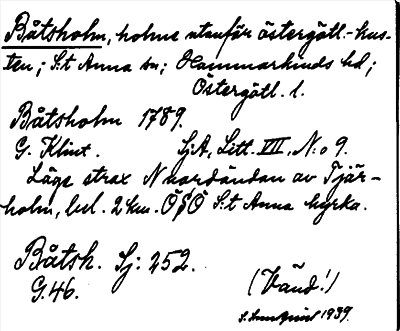 Båtsholm, holme utanför östergötl.-kus-
ten; S:t Anna sn; Hammarkinds hd;
Östergötl. l.
Båtsholm 1789.
G. Klint. Sj:A, Litt. VII, N:o 9.
Läge strax N nordändan av Tjär-
holm, bel. 2 km. ÖSÖ S:t Anna kyrka.
Båtsh. Sj: 252.
G.46. (Vänd!)
1939.